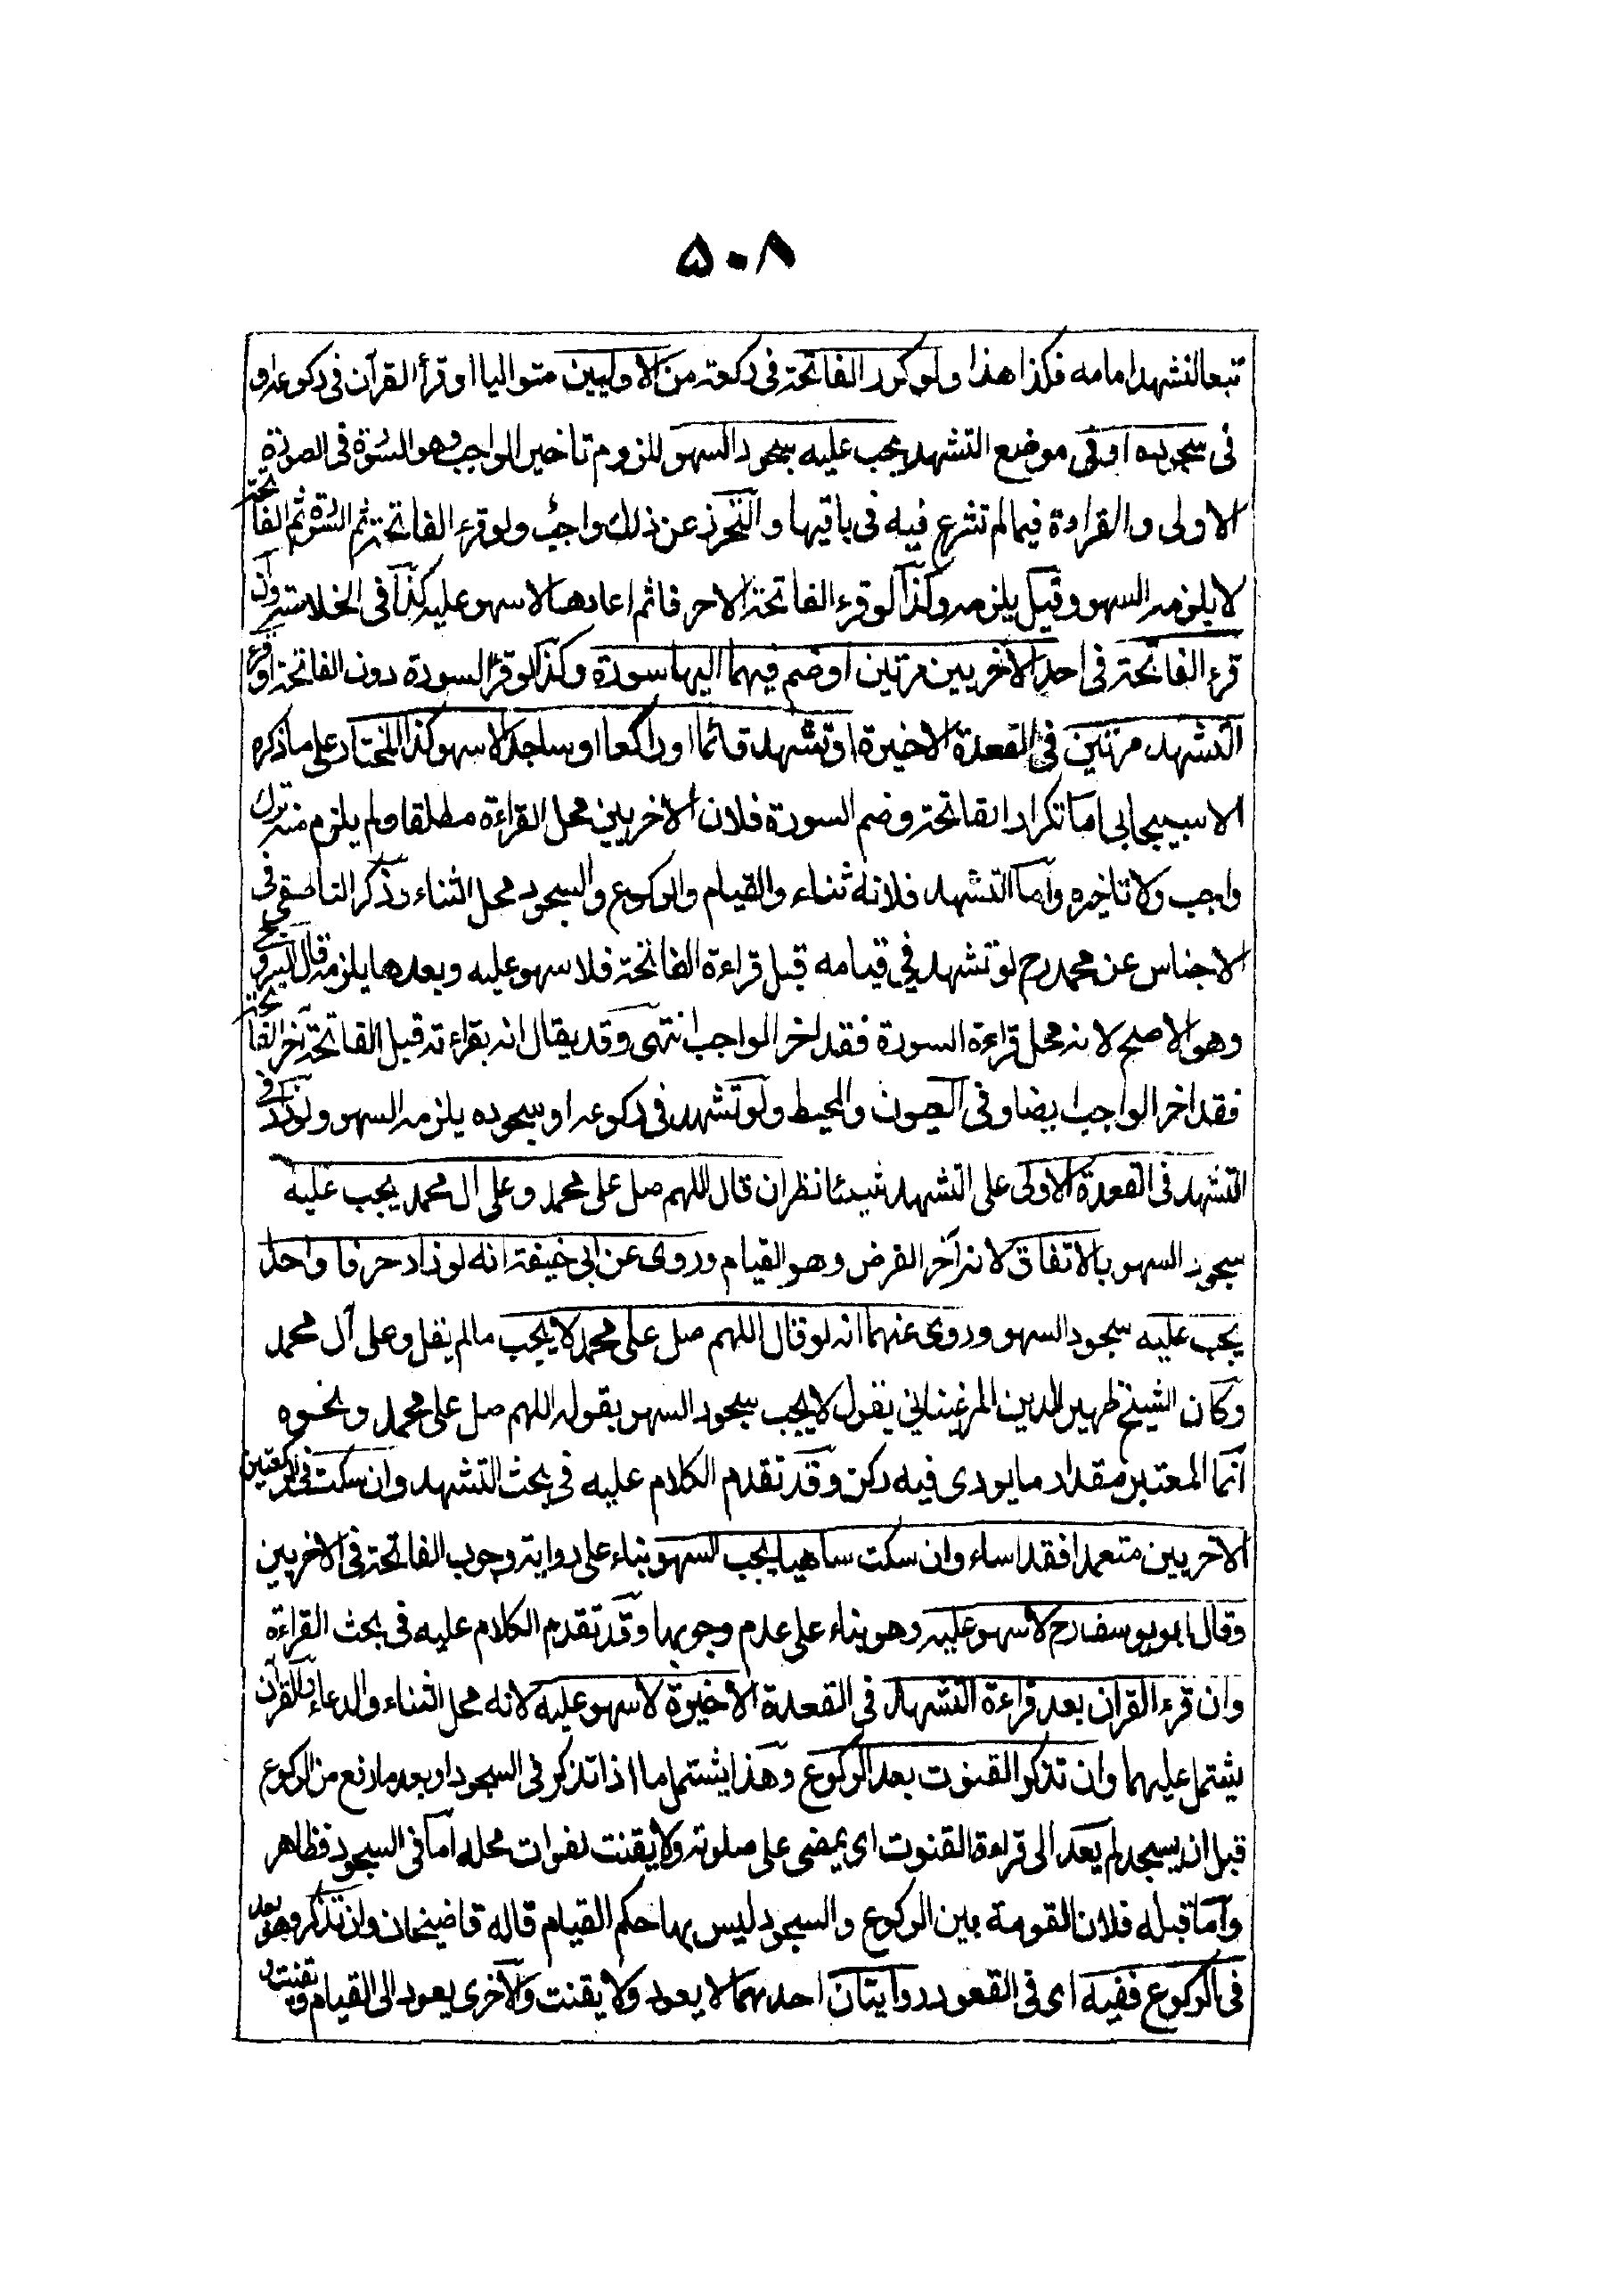 ۵۰۸
تبعا لتشهد امامه فكذا هذا ولو كرر الفاتحة فى ركعة من الاوليين متواليا او قرأ القرآن فى ركوعه او
فى سجوده او فى موضع التشهد يجب عليه سجود السهو للزوم تاخير الواجب وهو السورة فى الصورة
الاولى والقراءة فيما لم تشرع فيه فى باقيها والتحرز عن ذلك واجب ولو قرء الفاتحة ثم السورة ثم الفاتحة
لا يلزمه السهو وقيل يلزمه وكذا لو قرء الفاتحة الا حرفا ثم اعادها لا سهو عليه كذا فى الخلاصة وان
قرء الفاتحة فى احد الاخريين مرتين او ضم فيهما اليها سورة وكذا لو قرأ السورة دون الفاتحة او قرء
التشهد مرتين فى القعدة الاخيرة او تشهد قائما او راكعا او ساجدا لا سهو كذا المختار على ما ذكره
الاسبيجابى اما تكرار الفاتحة وضم السورة فلان الاخريين محل القراءة مطلقا ولم يلزم منه ترك
واجب ولا تاخيره واما التشهد فلانه ثناء والقيام والركوع والسجود محل الثناء وذكر الناطفى فى
الاجناس عن محمد رح لو تشهد فى قيامه قبل قراءة الفاتحة فلا سهو عليه وبعدها يلزمه قال السروجى
وهو الاصح لانه محل قراءة السورة فقد اخر الواجب انتهى وقد يقال انه بقراءته قبل الفاتحة آخر الفاتحة
فقد اخر الواجب ايضا وفى العيون والمحيط ولو تشهد فى ركوعه او سجوده يلزمه السهو ولو زاد فى
التشهد فى القعدة الاولى على التشهد شيئا نظر ان قال اللهم صل على محمد وعلى ال محمد يجب عليه
سجود السهو بالاتفاق لانه آخر الفرض وهو القيام وروى عن ابى حنيفة انه لو زاد حرفا واحدا
يجب عليه سجود السهو وروى عنهما انه لو قال اللهم صل على محمد لا يجب ما لم يقل وعلى آل محمد
وكان الشيخ ظهير الدين المرغينانى يقول لا يجب سجود السهو بقوله اللهم صل على محمد ونحوه
انما المعتبر مقدار ما يودى فيه ركن وقد تقدم الكلام عليه فى بحث التشهد وان سكت فى الركعتين
الاخريين متعمدا فقد اساء وان سكت ساهيا يجب السهو بناء على رواية وجوب الفاتحة فى الاخريين
وقال ابو يوسف رح لا سهو عليه وهو بناء على عدم وجوبها وقد تقدم الكلام عليه فى بحث القراءة
وان قرء القران بعد قراءة التشهد فى القعدة الاخيرة لا سهو عليه لانه محل الثناء والدعاء والقرآن
يشتمل عليهما وان تذكر القنوت بعد الركوع وهذا يشتمل ما اذا تذكر فى السجود او بعد ما رفع من الركوع
قبل ان يسجد لم يعد الى قراءة القنوت اى يمضى على صلوته ولا يقنت لفوات محله اما فى السجود فظاهر
واما قبله فلان القومة بين الركوع والسجود ليس بها حكم القيام قاله قاضيخان وان تذكر وهو بعد
فى الركوع ففيه اى فى القعود روايتان احدهما لا يعود ولا يقنت والاخرى يعود الى القيام ويقنت